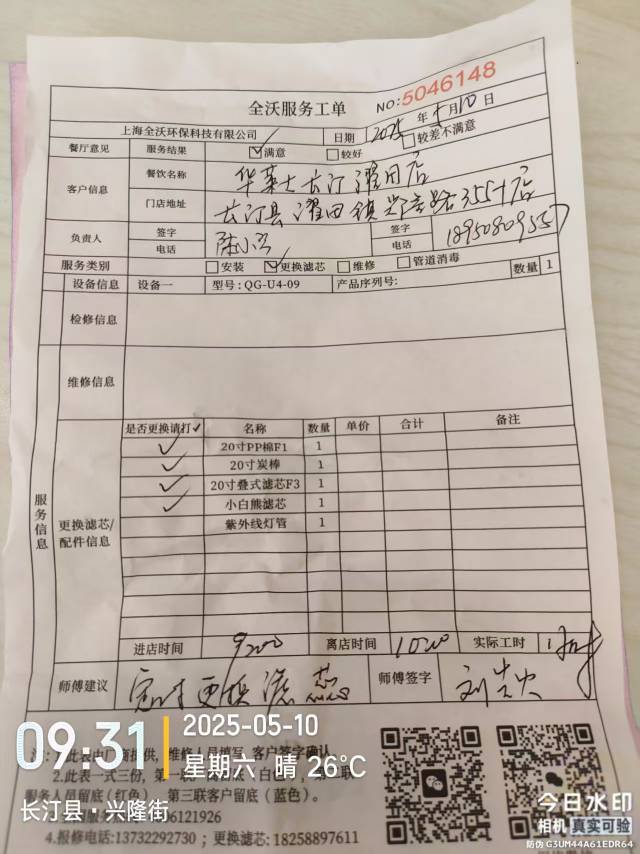 全沃服务工单
NO:5046148
上海全沃环保科技有限公司 日期 2025年5月10日
餐厅意见 服务结果 满意 较好 较差不满意
客户信息 餐饮名称 华莱士长汀濯田店
门店地址 长汀县濯田镇
负责人 签字 签字
电话 电话
服务类别 安装 更换滤芯 维修 管道消毒 数量 1
设备信息 设备一 型号:QG-U4-09 产品序列号:
检修信息
维修信息
服务信息
更换滤芯/配件信息
是否更换请打✓ 名称 数量 单价 合计 备注
✓ 20寸PP棉F1 1
✓ 20寸炭棒 1
✓ 20寸叠式滤芯F3 1
✓ 小白熊滤芯 1
紫外线灯管 1
进店时间 离店时间 实际工时
师傅建议 更换滤芯 师傅签字
09:31
2025-05-10
星期六·晴 26℃
长汀县·兴隆街
注:1.此表由厂商提供,维修人员填写,客户签字确认。
2.此表一式三份,第一联
服务人员留底(红色)。第三联客户留底(蓝色)。
06121926
4.报修电话:13732292730 ; 更换滤芯:18258897611
今日水印
相机 真实可验
防伪 G3UM44A61EDR64